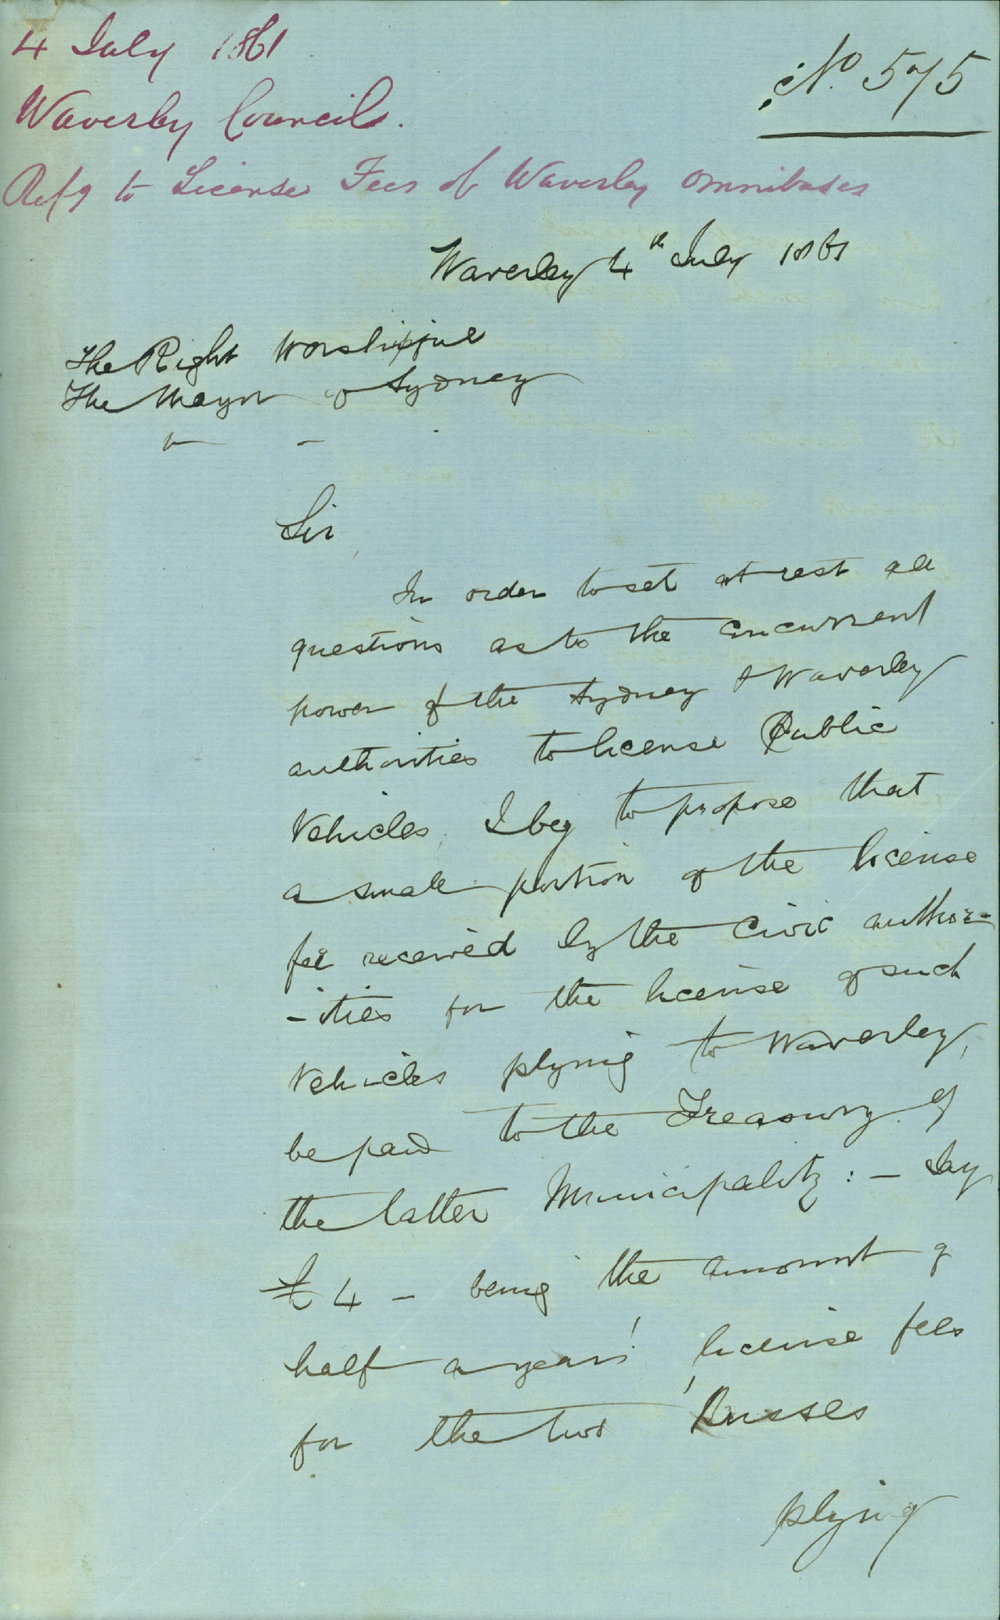 4 July 1861
Waverley Council.
No. 575
Refg to License Fees of Waverley Omnibuses
Waverley 4th July 1861
The Right Worshipful
The Mayor of Sydney
Sir
In order to set at rest all
questions as to the concurrent
power of the Sydney & Waverley
authorities to license Public
Vehicles, I beg to propose that
a small portion of the license
fee received by the Civic author=
-ities for the license of such
Vehicles plying to Waverley,
be paid to the Treasury of
the latter Municipality: - Say
£4 - being the amount of
half a years' license fees
for the two 'Busses
plying